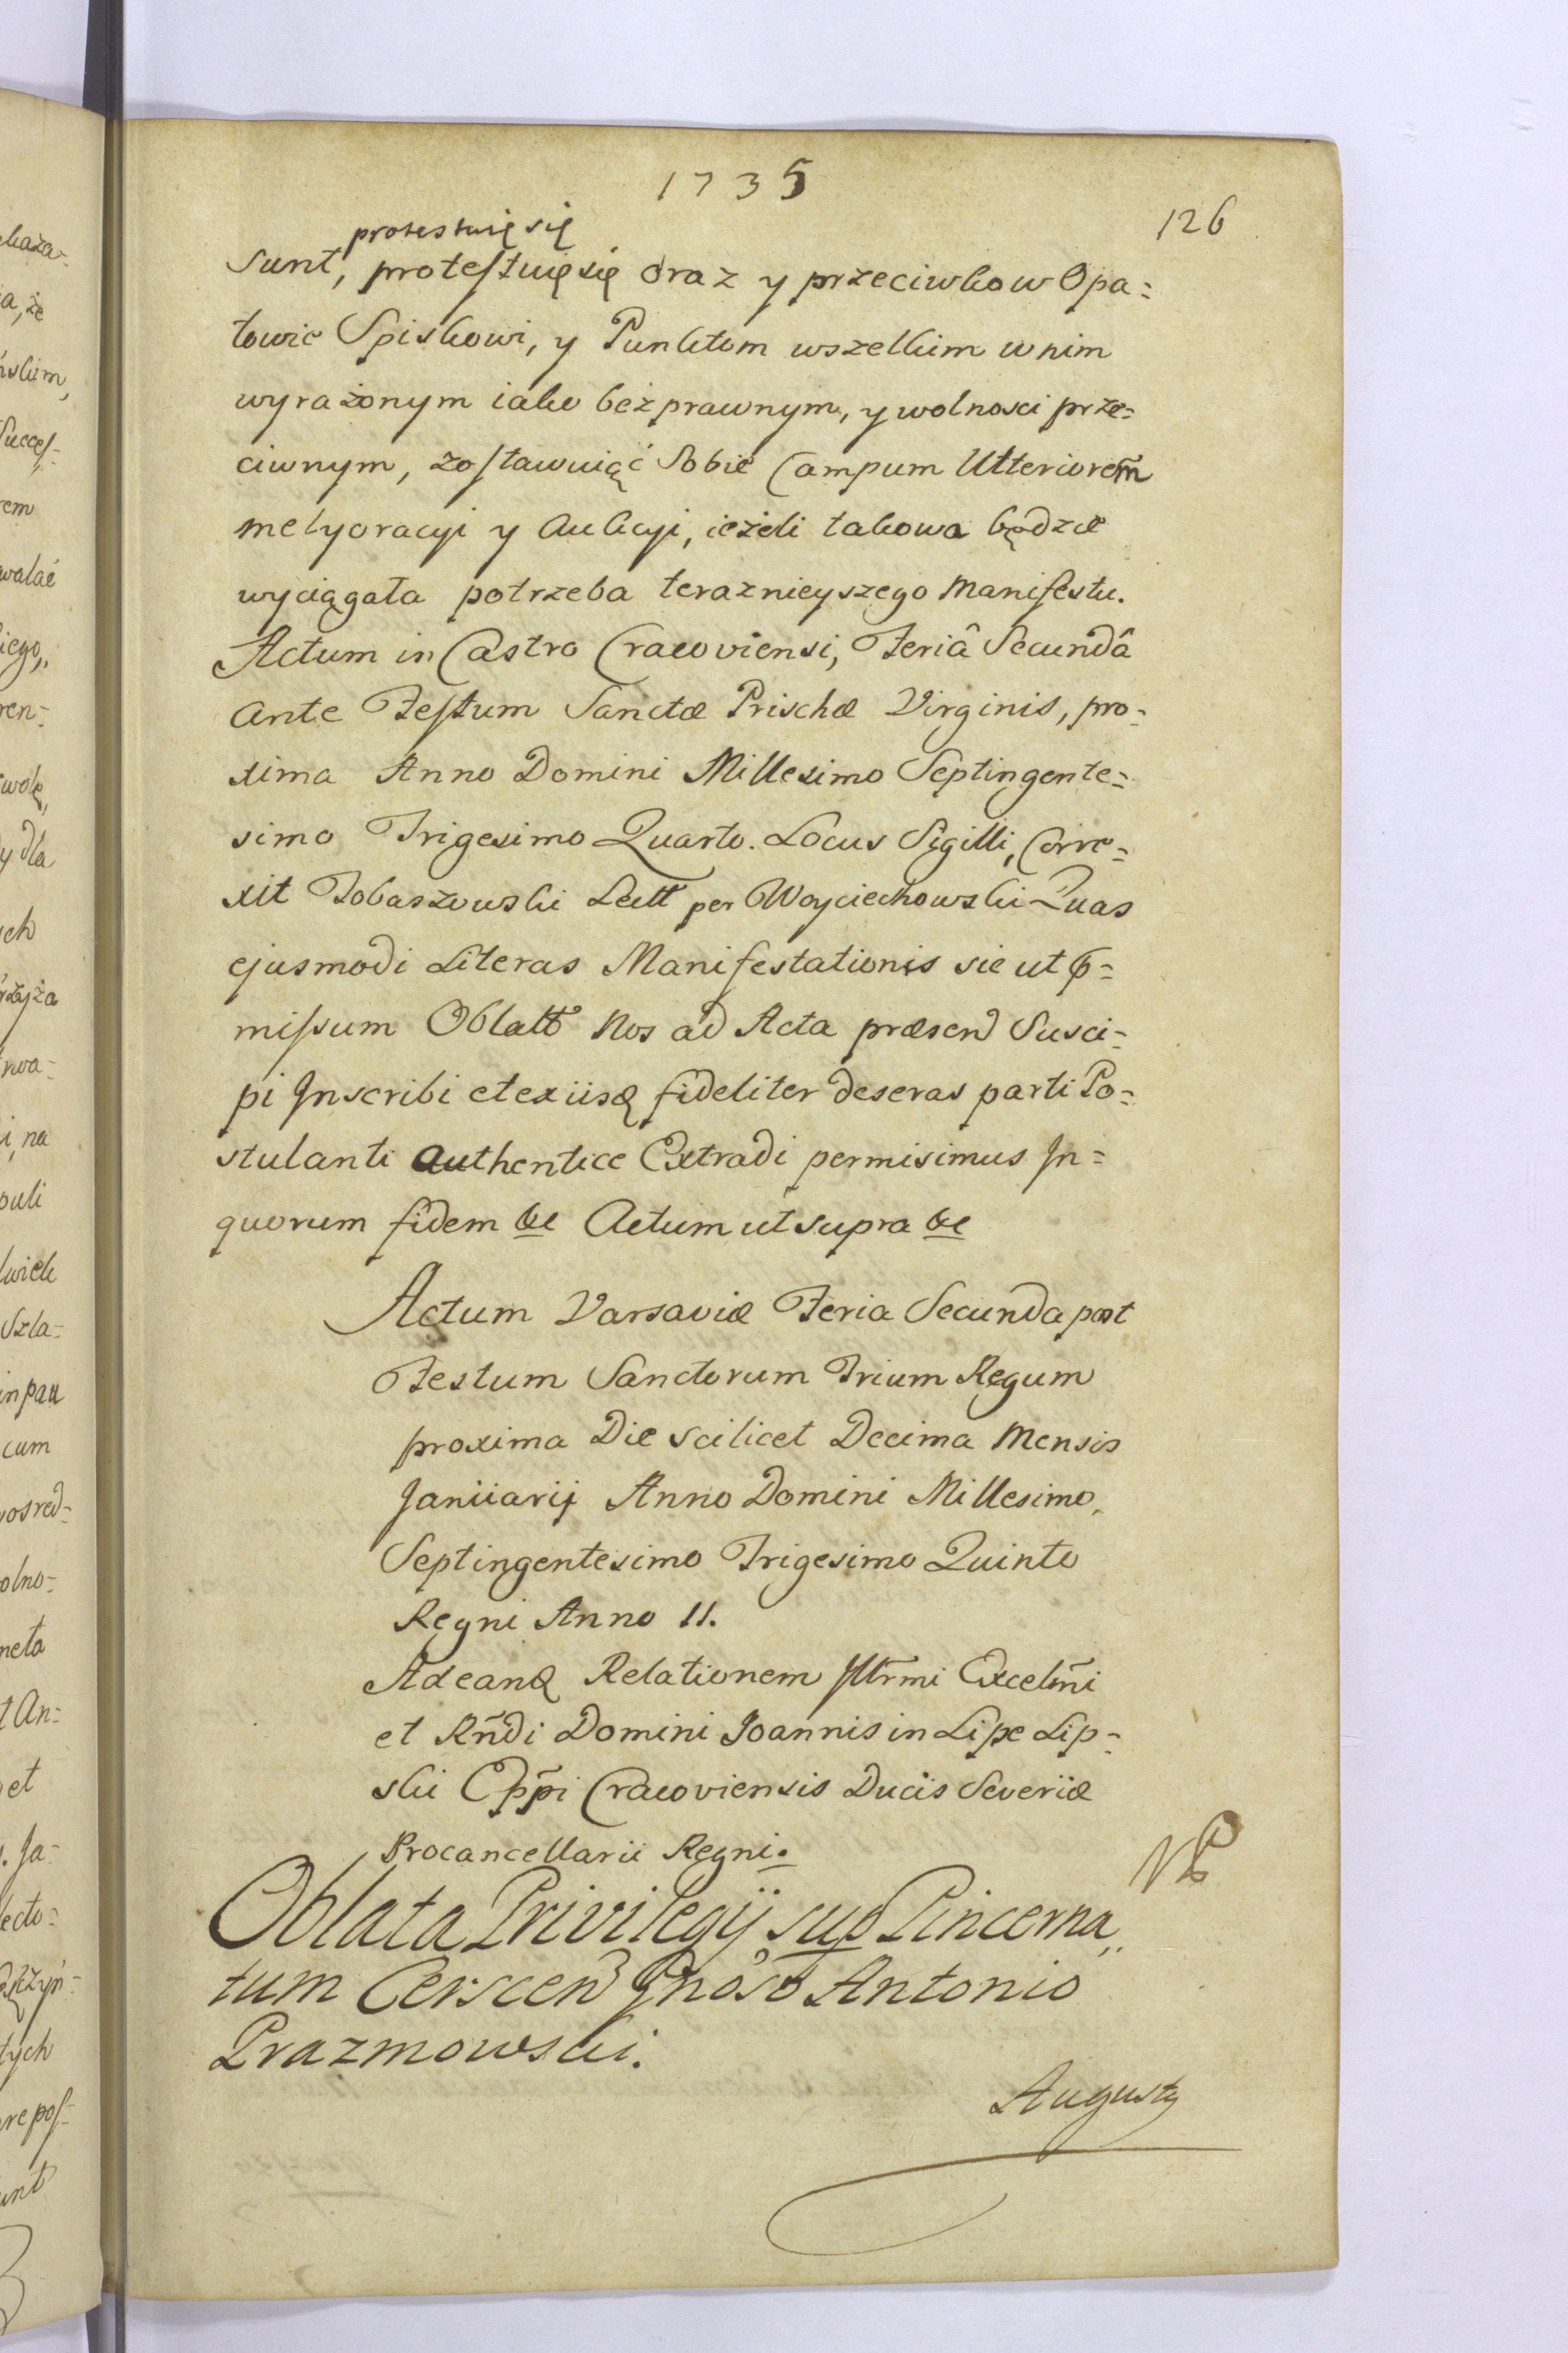 1735
126
protestuię się
sunt, protestuię się oraz y przeciwko w Opa=
towie Spiskowi, y Punktom wszelkim w nim
wyrażonym iako bezprawnym, y wolnosci prze=
ciwnym, zostawuiąć Sobie Campum Ulteriorem̃
melyoracyi y Aukcyi, ieżeli takowa będzie
wyciągała potrzeba teraznieyszego Manifestu.
Actum in Castro Cracoviensi, Feriâ Secundâ
ante Festum Sanctæ Prischæ Virginis, pro=
xima Anno Domini Millesimo Septingente=
simo Trigesimo Quarto. Locus Sigilli, Corre=
xit Tobaszowski Lectt per Woyciechowski Quas
ejusmodi Literas Manifestationis sic ut p=
missum Oblatt Nos ad Acta præsen Susci=
pi Inscribi et ex iisq fideliter deseras parti Po=
stulanti authentice Extradi permisimus In=
quorum fidem &c Actum ut supra &c
Actum Varsaviæ Feria Secunda post
Festum Sanctorum Trium Regum
proxima Die scilicet Decima Mensis
Januarij Anno Domini Millesimo
Septingentesimo Trigesimo Quinto
Regni Anno II.
Ad eanq Relationem Illr̃mi Excelm̃i
et Rñdi Domini Joannis in Lipe Lip=
ski Epp̃i Cracoviensis Ducis Severiæ
Procancellarii Regni.
NB
Oblata Privilegij sup Pincerna„
tum Cerscen Gnoso Antonio
Prazmowski.
Augusty